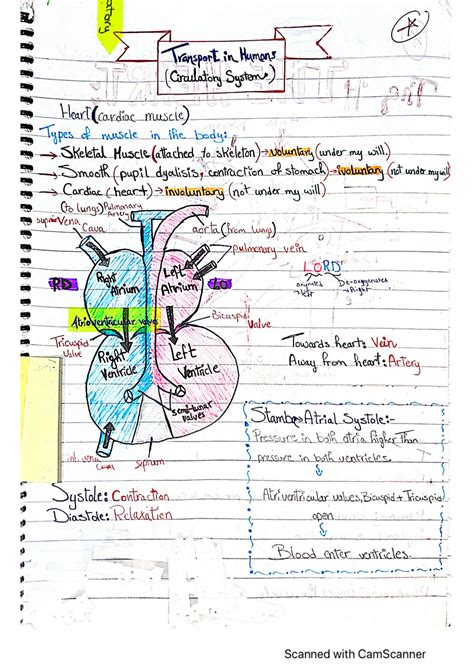 Transport in Humans
(Circulatory System)
Heart (cardiac muscle)
Types of muscle in the body:
→ Skeletal Muscle (attached to skeleton) → voluntary (under my will)
→ Smooth (pupil dyalisis, contraction of stomach) → ivoluntary (not under my will)
→ Cardiac (heart) → involuntary (not under my will)
(to lungs) Pulmonary
Artery
Vena
Cava
aorta (from lungs)
pulmonary vein
Right
Atrium
Left
Atrium
RD
LO
LORD
oxygenated
left
De-oxygenated
Right
Atrioventricular valves
Bicuspid
Valve
Tricuspid
Valve
Right
Ventricle
Left
Ventricle
semi-lunar
valves
Towards heart: Vein
Away from heart: Artery
inf. vena
Cava
Septum
Systole: Contraction
Diastole: Relaxation
Atrial Systole:-
Pressure in both atria higher than
pressure in both ventricles.
Atriventricular valves, Bicuspid + Tricuspid
open
Blood enter ventricles.
Scanned with CamScanner